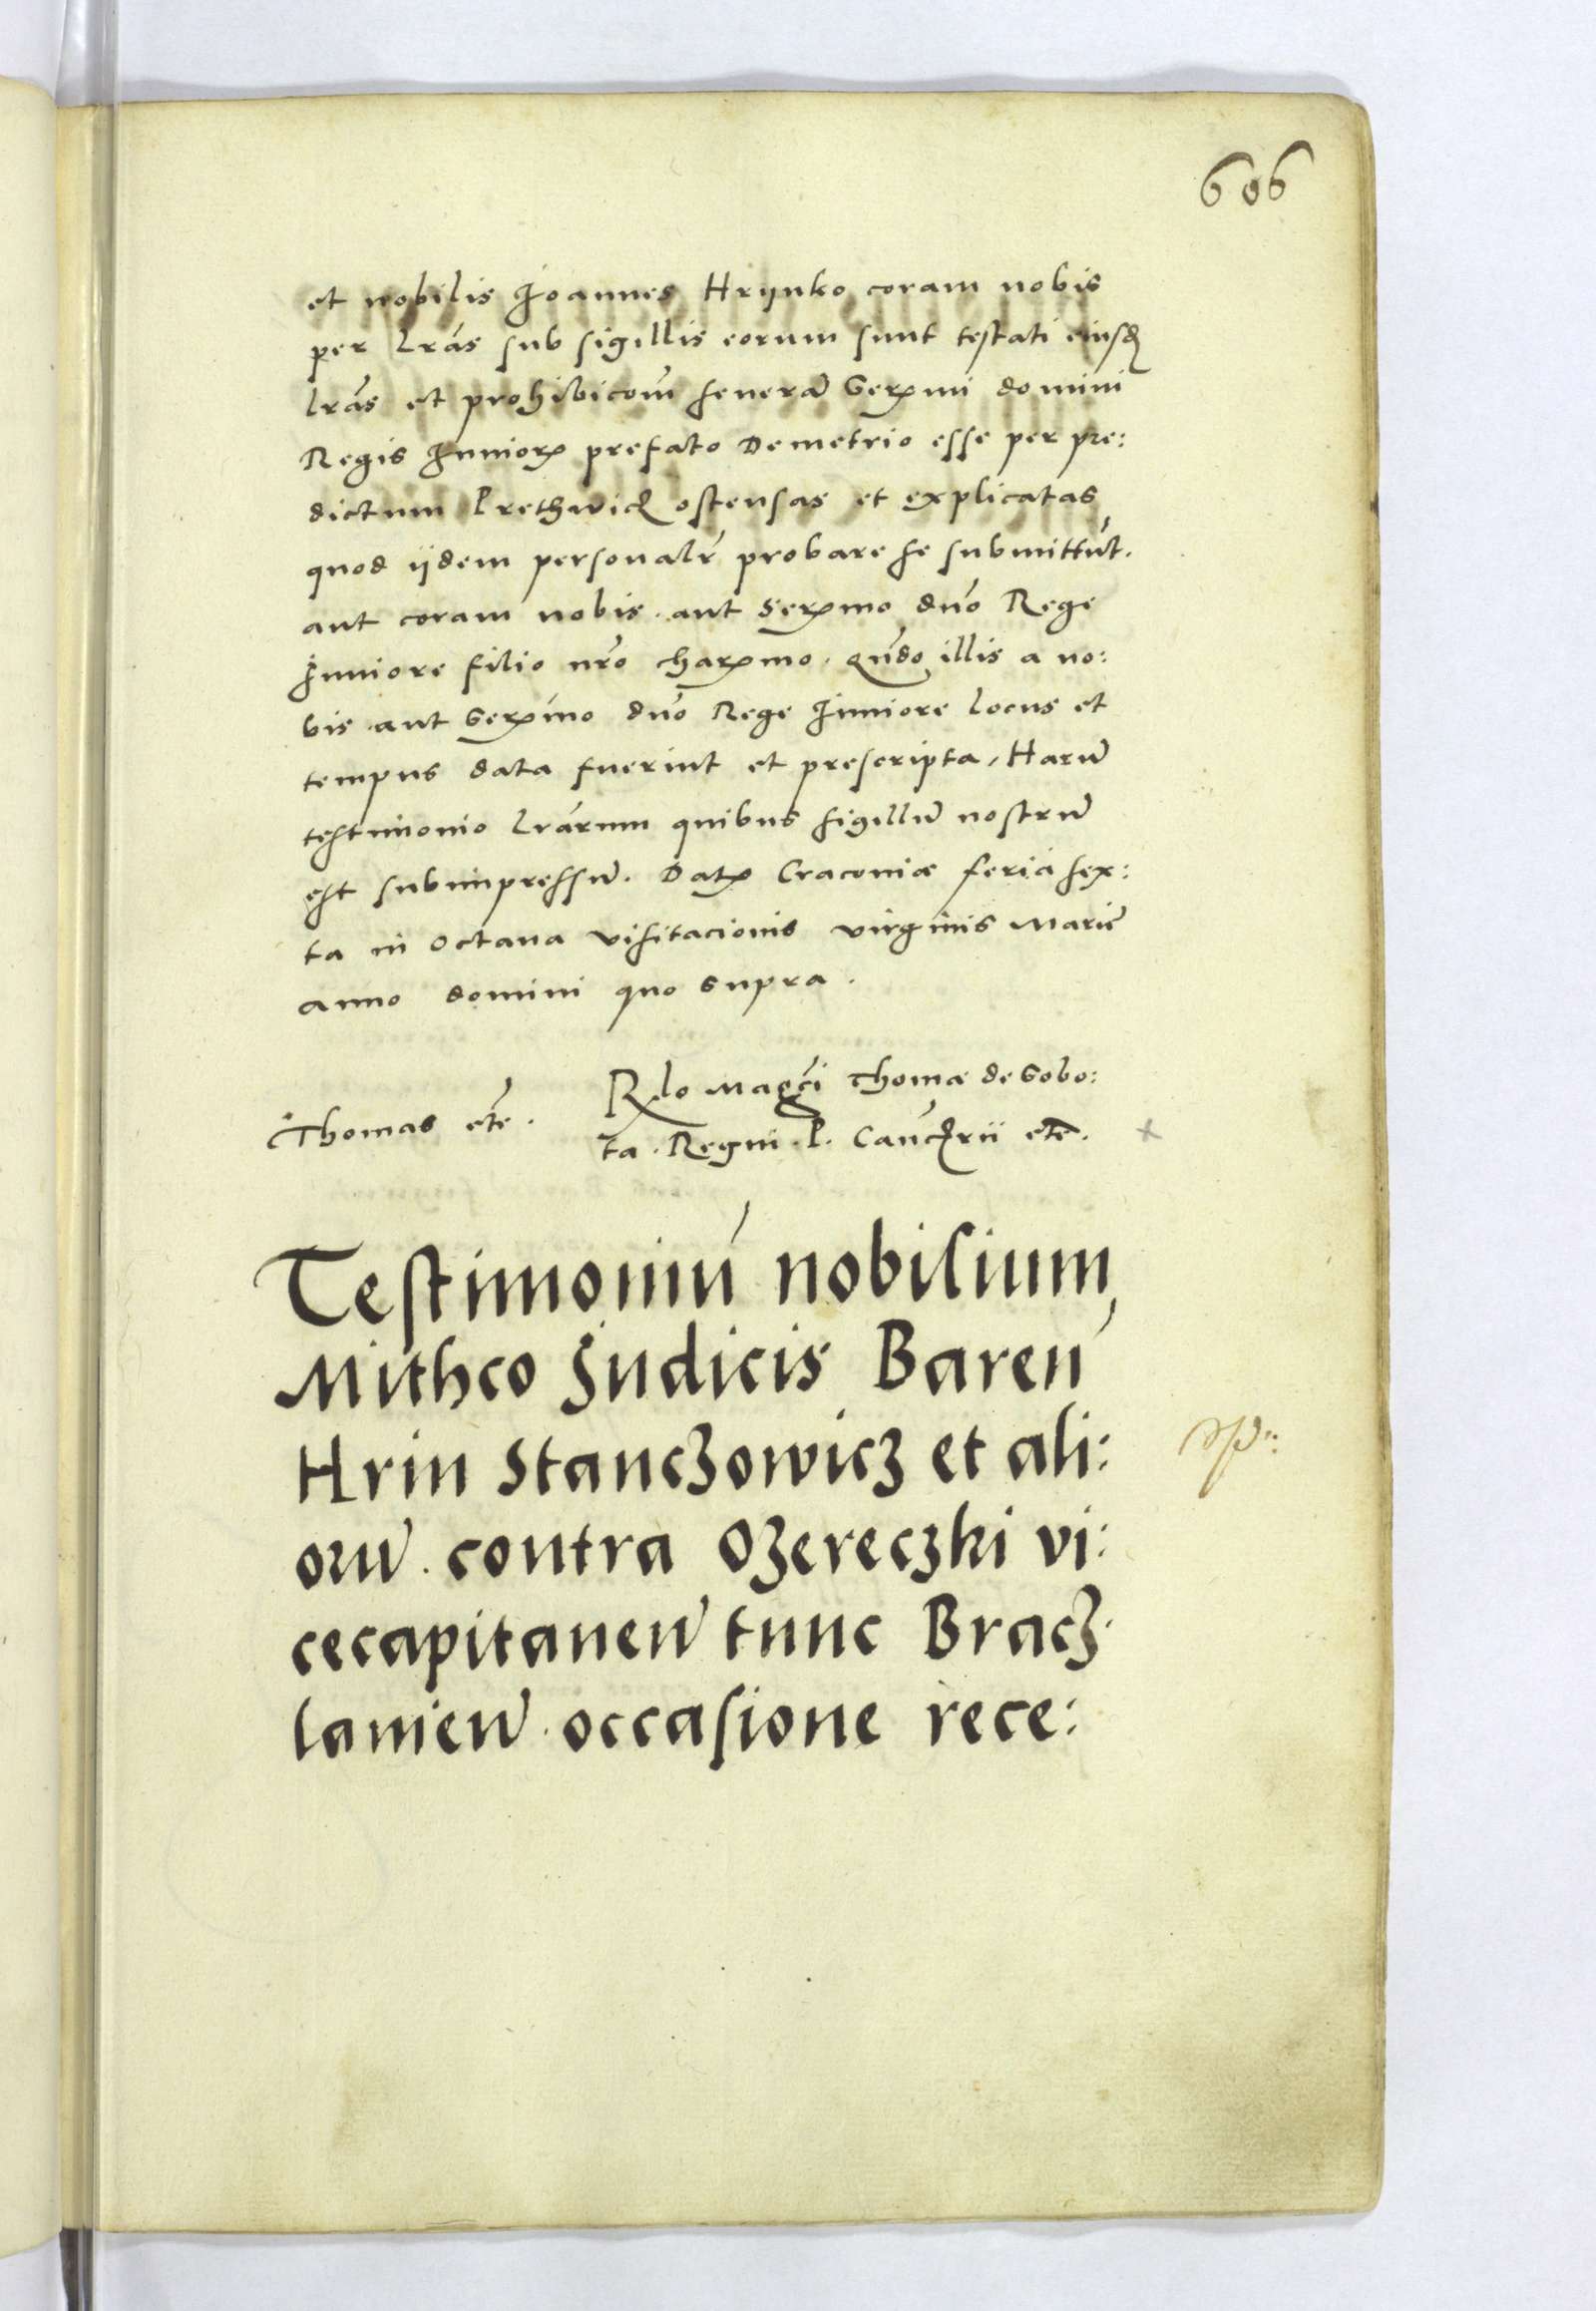 606
et nobilis Joannes Hrÿnko coram nobis
per lrãs sub sigillis eorum sunt testati eiusd
lrãs et prohibicoẽm severam Sermi domini
Regis Junior prefato Demetrio esse per pre:
dictum Prethwicz ostensas et explicatas
quod ijdem personalr probare se submittũt.
aut coram nobis. aut Sermo dno Rege
Juniore filio nrõ charmo. Qũdo illis a no:
bis aut Sermo dno Rege Juniore locus et
tempus data fuerint et prescripta, Harũ
testimonio lrãrum quibus sigillũ nostrũ
est subimpressũ. Dat Cracoviæ feria sex:
ta in Octava visitacionis virginis Marie
anno domini quo supra.
Thomas etc.
Rlo Magci Thomæ de Sobo:
ta. Regni. P. Cancrii etc.
Testimoniũ nobilium
Mithco Judicis Baren
Hrin Stanczowicz et ali:
orũ. contra Ozereczki vi:
cecapitaneũ tunc Bracz
lavieñ. occasione rece: